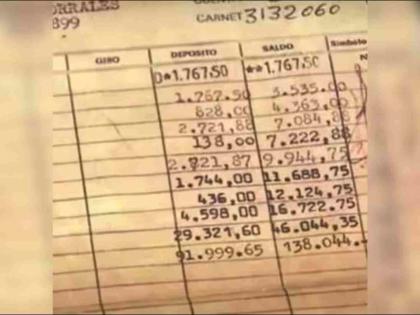 ORRALES
899
CARNET 3132060
GIRO DEPOSITO SALDO Símbolo
D*1.767,50 **1.767,50
1.767.50 3.535.00
828,00 4.363,00
2.721,88 7.084,88
138,00 7.222,88
2.721,87 9.944,75
1.744,00 11.688,75
436,00 12.124,75
4.598,00 16.722.75
29.321,60 46.044,35
91.999.65 138.044.